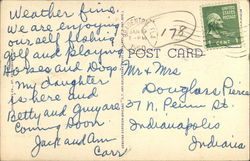 Weather fine
we are enjoying
our self fishing
golf and playing
Horses and Dogs
my daughter
is here and
Betty and Guy are
coming soon.
Jack and Ann
Carr
178
POST CARD
Mr + Mrs
Douglass Pierce
37 N. Penn St.
Indianapolis
Indiana
1 CENT 1